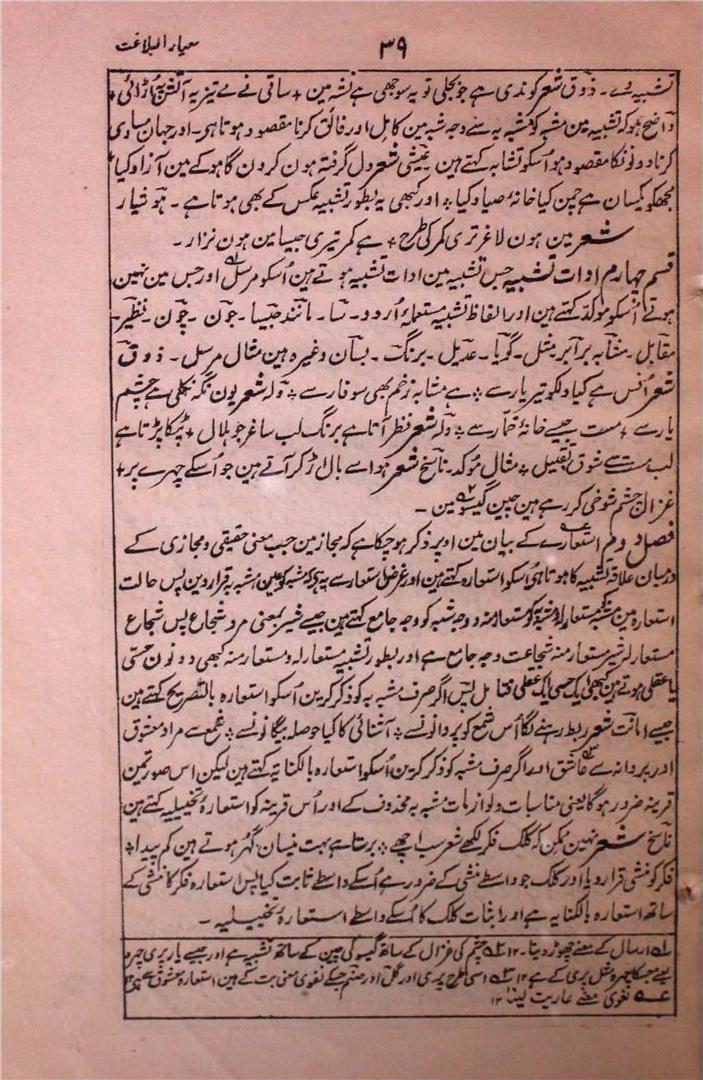 ۳۹ معیار البلاغت
تشبیہ ہے۔ ذوق شعر کوندی ہے جو بجلی تو یہ سوجھی ہے نشہ مین + ساقی نے مے تیز پہ آتش
واضح ہو کہ تشبیہ مین مشبہ کو مشبہ بہ سے وجہ شبہ مین کامل اور فائق کرنا مقصود ہوتا ہی۔ اور جہان مساوی
کرنا دونونکا مقصود ہو اُسکو تشابہ کہتے ہین عیشی شعر دل گرفتہ ہون کرون گا ہو کے مین آزاد کیا
مجھکو یکسان ہے چمن کیا خانۂ صیاد کیا ؞ اور کبھی یہ بطور تشبیہ عکس کے بھی ہوتا ہے۔ ہوشیار
شعر مین ہون لاغر تری کمر کی طرح + ہے کمر تیری جیسا مین ہون نزار۔
قسم چہارم ادات تشبیہ جس تشبیہ مین ادات تشبیہ ہوتے ہین اُسکو مرسل اور جس مین نہین
ہوتے اُسکو موکد کہتے ہین اور الفاظ تشبیہ مستعملۂ اُردو۔ سا۔ مانند جیسا۔ جون۔ چون۔ نظیر۔
مقابل۔ مشابہ برابر مثل۔ گویا۔ عدیل۔ برنگ۔ بسان وغیرہ ہین مثال مرسل۔ ذوق
شعر اُنس ہے کیا دلکو تیر یار سے ؞ ہے مشابہ زخم بھی سوفار سے ؞ ولہ شعر یون نگہ نکلی ہے چشم
یار سے + مست جیسے خانۂ خمار سے ؞ ولہ شعر نظر آتا ہے برنگ لب ساغر جو ہلال + ٹپکا پڑتا ہے
لب مست سے شوق تقبیل ؞ مثال مؤکد۔ ناسخ شعر ہوا سے بال اڑ کر آتے ہین جو اُسکے چہرے پر +
غزال چشم شوخی کر رہے ہین چین گیسو مین۔
فصل دوم استعارے کے بیان مین اوپر ذکر ہو چکا ہے کہ مجاز مین جب معنی حقیقی و مجازی کے
درمیان علاقہ تشبیہ کا ہوتا ہی اُسکو استعارہ کہتے ہین اور غرض استعارے سے یہ ہی کہ مشبہ کو عین مشبہ بہ قرار دین پس حالت
استعارہ مین مشبہ کو مستعار لہ اور مشبہ بہ کو مستعار منہ و وجہ شبہ کو وجہ جامع کہتے ہین جیسے شیر بمعنی مرد شجاع پس شجاع
مستعار لہ شیر مستعار منہ شجاعت وجہ جامع ہے اور بطور تشبیہ مستعار لہ و مستعار منہ کبھی دونون حسّی
یا عقلی ہوتے ہین کبھی ایک حسی ایک عقلی فتامل پس اگر صرف مشبہ بہ کو ذکر کرین اُسکو استعارہ بالتصریح کہتے ہین
جیسے امانت شعر ربط رہنے لگا اُس شمع کو پروانونسے ؞ آشنائی کا کیا حوصلہ بیگانونسے ؞ شمع سے مراد معشوق
اور پروانہ سے عاشق اور اگر صرف مشبہ کو ذکر کرین اُسکو استعارہ بالکنایہ کہتے ہین لیکن اس صورتمین
قرینہ ضرور ہو گا یعنی مناسبات و لوازمات مشبہ بہ محذوف کے اور اُس قرینہ کو استعارۂ تخییلیہ کہتے ہین
ناسخ شعر نہین ممکن کہ کلک فکر لکھے شعر سب اچھے ؞ برستا ہے بہت نیسان گہر ہوتے ہین کم پیدا ؞
فکر کو منشی قرار دیا اور کلک جو واسطے منشی کے ضرور ہے اُسکے واسطے ثابت کیا پس استعارہ فکر کا منشی کے
ساتھ استعارہ بالکنایہ ہے اور اثبات کلک کا اُسکے واسطے استعارۂ تخییلیہ۔
۱ ارسال کے معنے چھوڑ دینا۔ ۱۲ ۲ چشم کی غزال کے ساتھ گیسو کی چین کے ساتھ تشبیہ ہے اور جیسے یار پری چہرہ
یعنے جسکا چہرہ مثل پری کے ہے ۱۲ ۳ اسی طرح پری اور گل اور صنم جسکے لغوی معنی بت کے ہین استعارہ معشوق سے ہی ۱۲
لغوی معنے عاریت لینا ۱۲